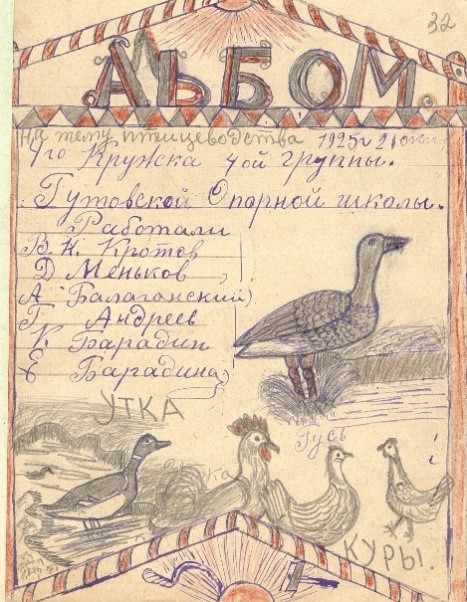 32
АЛЬБОМ.
на тему птицеводства 1925г 21
1го Кружка 4ой группы.
Гутовской Опорной школы.
Работали
В. Н. Кротов
Д Меньков
А Балаганский
Г Андреев
К. Барадин
Е Барадина
УТКА
Гусь
КУРЫ.